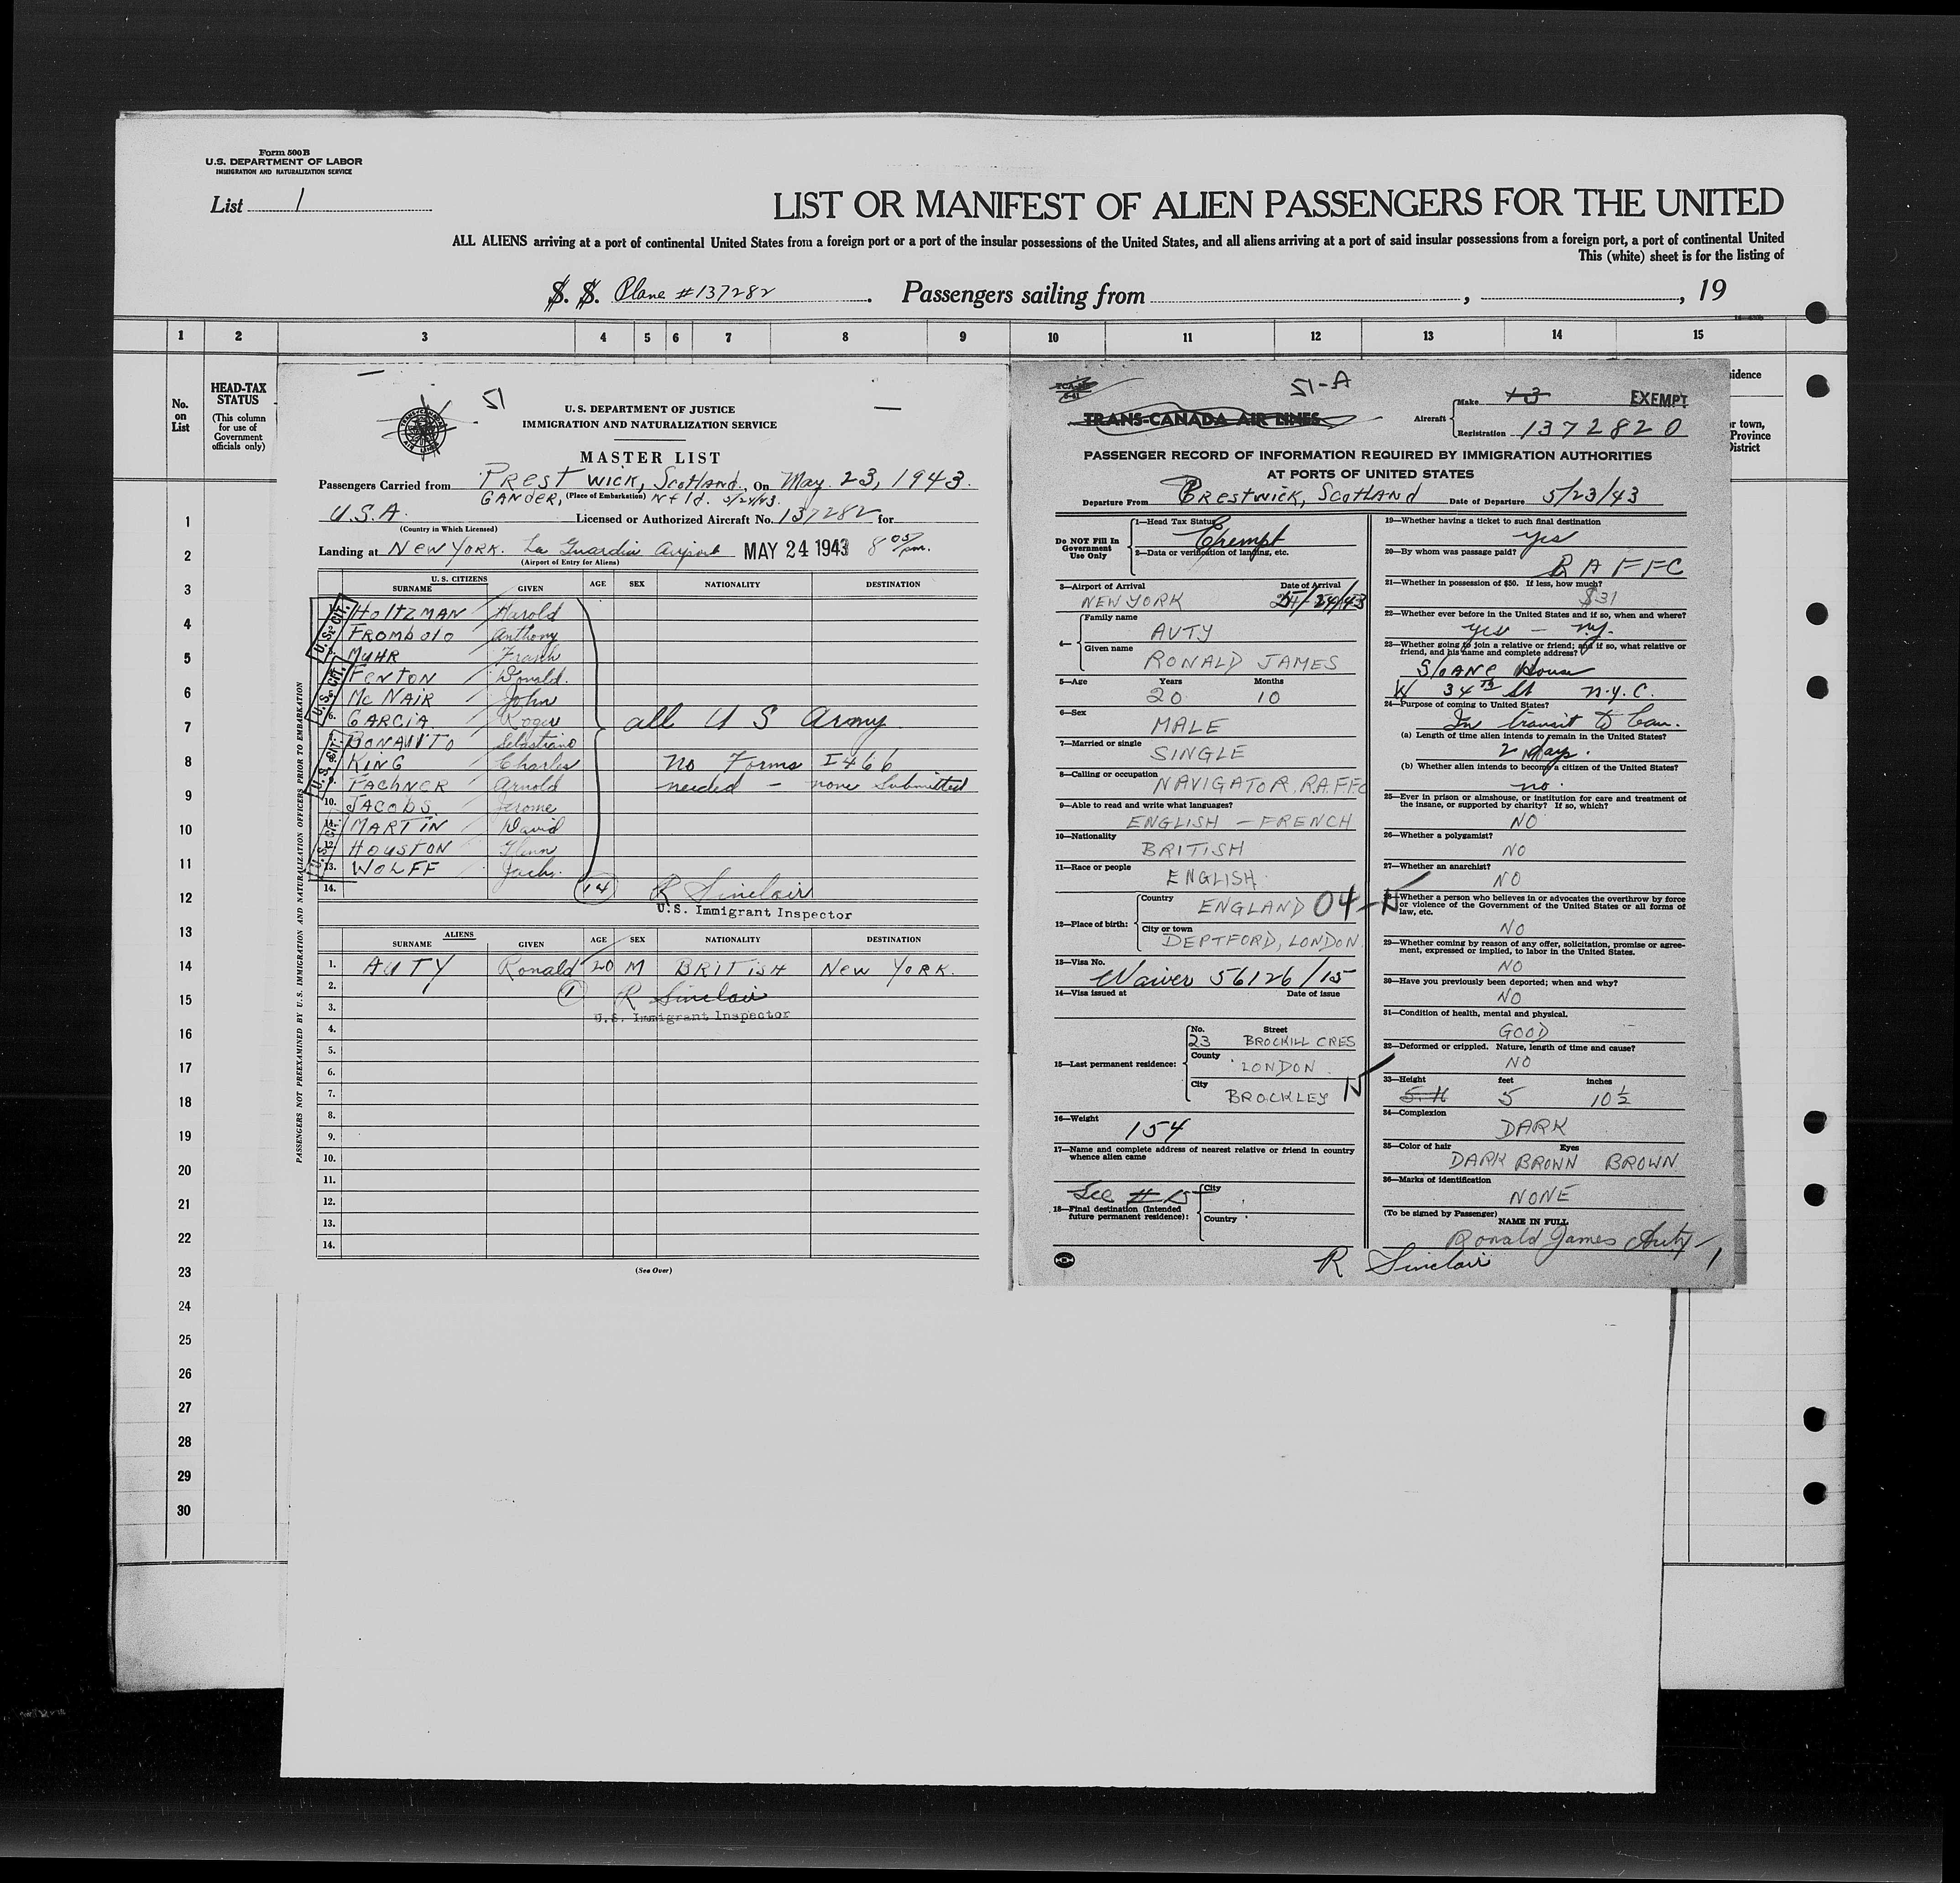 Form 500 B
U.S. DEPARTMENT OF LABOR
IMMIGRATION AND NATURALIZATION SERVICE
List 1
LIST OR MANIFEST OF ALIEN PASSENGERS FOR THE UNITED
ALL ALIENS arriving at a port of continental United States from a foreign port or a port of the insular possessions of the United States, and all aliens arriving at a port of said insular possessions from a foreign port, a port of continental United
This (white) sheet is for the listing of
S. S. Plane #137282. Passengers sailing from , , 19
1 2 3 4 5 6 7 8 9 10 11 12 13 14 15
No. on List
HEAD-TAX STATUS
(This column for use of Government officials only)
1
2
3
4
5
6
7
8
9
10
11
12
13
14
15
16
17
18
19
20
21
22
23
24
25
26
27
28
29
30
51
U.S. DEPARTMENT OF JUSTICE
IMMIGRATION AND NATURALIZATION SERVICE
MASTER LIST
Passengers Carried from Prestwick, Scotland, On May 23, 1943.
GANDER, (Place of Embarkation) Nfld. 5/24/43.
U.S.A. Licensed or Authorized Aircraft No. 137282 for
(Country in Which Licensed)
Landing at New York. La Guardia Airport MAY 24 1943 8 05 pm.
(Airport of Entry for Aliens)
U. S. CITIZENS
SURNAME GIVEN AGE SEX NATIONALITY DESTINATION
HOLTZMAN Harold
FROMBOLO Anthony
MUHR Frank
FENTON Donald.
McNAIR John
6. GARCIA Roger
BONAVITO Sebastiano
KING Charles
9. FACHNER Arnold
10. JACOBS Jerome
11. MARTIN David
12. HOUSTON Glenn
13. WOLFF Jack.
14.
U.S. CIT.
U.S. CIT.
U.S. CIT.
U.S. CIT.
all U S Army
No Forms I466
needed - none submitted
14 R Sinclair
U.S. Immigrant Inspector
ALIENS
SURNAME GIVEN AGE SEX NATIONALITY DESTINATION
1. AUTY Ronald 20 M BRITISH NEW YORK.
2. 1 R Sinclair
3. U.S. Immigrant Inspector
4.
5.
6.
7.
8.
9.
10.
11.
12.
13.
14.
(See Over)
PASSENGERS NOT PREEXAMINED BY U.S. IMMIGRATION AND NATURALIZATION OFFICERS PRIOR TO EMBARKATION
51-A
TRANS-CANADA AIR LINES
Aircraft Make EXEMPT
Registration 1372820
PASSENGER RECORD OF INFORMATION REQUIRED BY IMMIGRATION AUTHORITIES
AT PORTS OF UNITED STATES
Departure From Prestwick, Scotland Date of Departure 5/23/43
Do NOT Fill In Government Use Only
1—Head Tax Status Exempt
2—Data or verification of landing, etc.
3—Airport of Arrival Date of Arrival
NEW YORK
4— Family name
AUTY
Given name
RONALD JAMES
5—Age Years Months
20 10
6—Sex
MALE
7—Married or single
SINGLE
8—Calling or occupation
NAVIGATOR. R.A.F.F.C
9—Able to read and write what languages?
ENGLISH - FRENCH
10—Nationality
BRITISH
11—Race or people
ENGLISH
12—Place of birth: Country
ENGLAND 04-N
City or town
DEPTFORD, LONDON.
13—Visa No.
Waiver 56126/15
14—Visa issued at Date of issue
15—Last permanent residence: No. Street
23 BROCKILL CRES
County
LONDON
City
BROCKLEY N
16—Weight
154
17—Name and complete address of nearest relative or friend in country whence alien came
See # 15
18—Final destination (Intended future permanent residence): City
Country
19—Whether having a ticket to such final destination
yes
20—By whom was passage paid?
R A F F C
21—Whether in possession of $50. If less, how much?
$31
22—Whether ever before in the United States and if so, when and where?
yes - NY.
23—Whether going to join a relative or friend; and if so, what relative or friend, and his name and complete address?
Sloane House
W 34th St N.Y.C.
24—Purpose of coming to United States?
In transit to Can.
(a) Length of time alien intends to remain in the United States?
2 days.
(b) Whether alien intends to become a citizen of the United States?
no.
25—Ever in prison or almshouse, or institution for care and treatment of the insane, or supported by charity? If so, which?
NO
26—Whether a polygamist?
NO
27—Whether an anarchist?
NO
Whether a person who believes in or advocates the overthrow by force or violence of the Government of the United States or all forms of law, etc.
NO
29—Whether coming by reason of any offer, solicitation, promise or agreement, expressed or implied, to labor in the United States.
NO
30—Have you previously been deported; when and why?
NO
31—Condition of health, mental and physical.
GOOD
32—Deformed or crippled. Nature, length of time and cause?
NO
33—Height feet inches
5 10 ½
34—Complexion
DARK
35—Color of hair Eyes
DARK BROWN BROWN
36—Marks of identification
NONE
(To be signed by Passenger)
NAME IN FULL
Ronald James Auty
R Sinclair 1